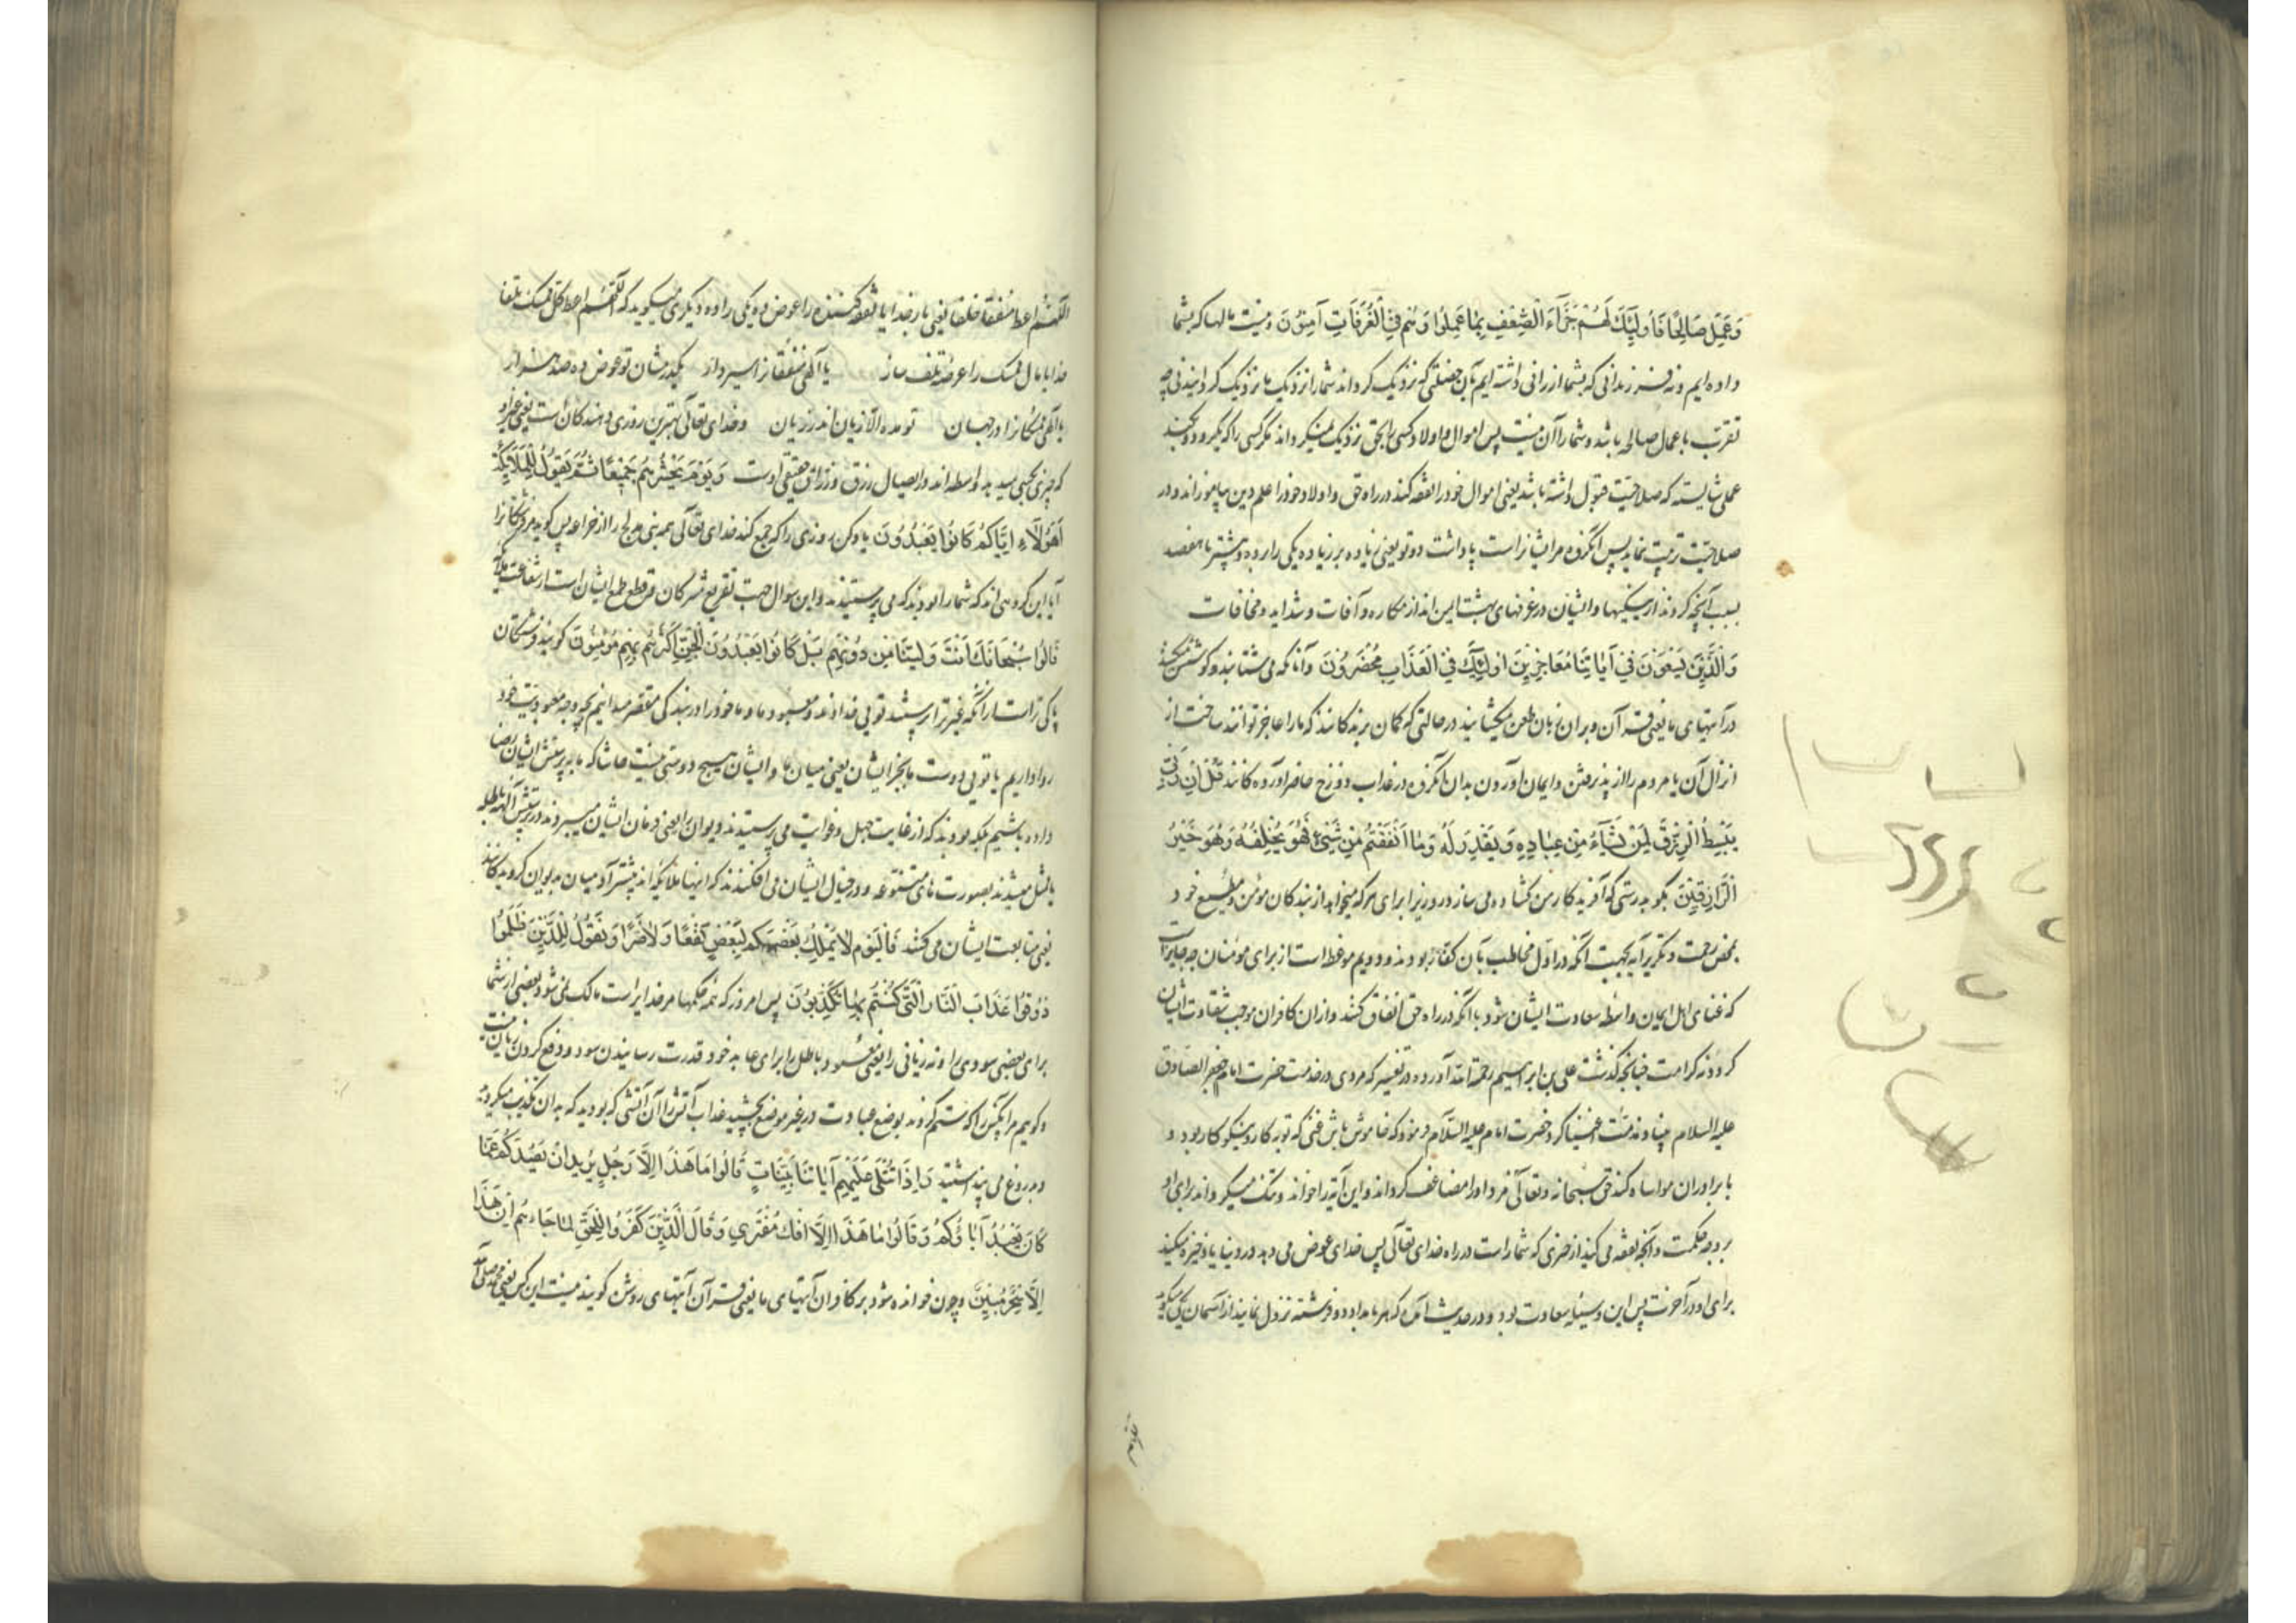 وَعَمِلَ صَالِحًا فَأُولَٰئِكَ لَهُمْ جَزَاءُ الضِّعْفِ بِمَا عَمِلُوا وَهُمْ فِي الْغُرُفَاتِ آمِنُونَ ونیست مالها که بشما
داده‌ایم ونه فرزندانی که بشما ارزانی داشته ایم بآن خصلتی که نزدیک کرداند شمارا نزدیک ما نزدیک کردانیدنی چه
تقرب باعمال صالحه باشد وشمارا آن نیست پس اموال واولاد کسی را بحق نزدیک نمیکرداند مکر کسی را که بکرود وبکند
عملی شایسته که صلاحیت قبول داشته باشد یعنی اموال خود را نفقه کند در راه حق واولاد خود را علم دین بیاموزاند ودر
صلاحیت تربیت نماید پس آنکروه مر ایشانراست پاداشت دوتو یعنی زیاده بر زیاده یکی را ده وبیشتر تا هفصد
بسبب آنچه کردند از نیکیها وایشان در غرفهای بهشت ایمن اند از مکاره وآفات وشداید ومخافات
وَالَّذِينَ يَسْعَوْنَ فِي آيَاتِنَا مُعَاجِزِينَ أُولَٰئِكَ فِي الْعَذَابِ مُحْضَرُونَ وآنانکه می شتابند وکوشش میکنند
در آیتهای ما یعنی قرآن وبر آن زبان طعن میکشایند در حالتی که کمان برندکانند که ما را عاجز توانند ساخت از
انزال آن یا مردم را از پذیرفتن وایمان آوردن بدان آنکروه در عذاب دوزخ حاضر آورده کانند قُلْ إِنَّ رَبِّي
يَبْسُطُ الرِّزْقَ لِمَنْ يَشَاءُ مِنْ عِبَادِهِ وَيَقْدِرُ لَهُ وَمَا أَنْفَقْتُمْ مِنْ شَيْءٍ فَهُوَ يُخْلِفُهُ وَهُوَ خَيْرُ
الرَّازِقِينَ بکو بدرستی که آفریدکار من کشاده می سازد روزیرا برای هرکه میخواهد از بندکان مؤمن ومطیع خود
بمحض رحمت وتکریر آیه بجهت آنکه در اول مخاطب بآن کفار بودند ودویم موعظه است از برای مؤمنان
که غنای اهل ایمان واسطه سعادت ایشان شود با آنکه در راه حق انفاق کنند واز آن کافران موجب شقاوت ایشان
کردد نه کرامت چنانچه کذشت علی بن ابراهیم رحمة الله آورده در تفسیر که مردی در خدمت حضرت امام جعفر الصادق
علیه السلام مذمت اغنیا کرد حضرت امام علیه السلام فرمود که خاموش باش غنی که توبه کار ونیکو کار بود و
با برادران مواساه کند حق سبحانه وتعالی مزد او را مضاعف کرداند واین آیه را خواند وتنک میکرداند برای او
بر وجه حکمت وآنچه نفقه می کنید از چیزی که شماراست در راه خدای تعالی پس خدای عوض می دهد در دنیا یا ذخیره میکند
برای او در آخرت پس این وسیله سعادت بود ودر حدیث آمده که هر بامداد دو فرشته نزول نمایند از آسمان یکی میکوید
اللهم اعط منفقا خلفا یعنی بار خدایا نفقه کننده را عوض ده یکی را ده ودیکری میکوید که اللهم اعط کل ممسک تلفا
خدایا مال ممسک را عرضه تلف ساز یا الهی منفقانرا سیر دار یکدرمشان تو عوض ده صد هزار
یا الهی ممسکانرا در جهان تو مده الا زیان اندر زیان وخدای تعالی بهترین روزی دهندکان است یعنی غیر او
که چیزی بکسی میدهد واسطه اند در ایصال رزق ورزاق حقیقی اوست وَيَوْمَ يَحْشُرُهُمْ جَمِيعًا ثُمَّ يَقُولُ لِلْمَلَائِكَةِ
أَهَٰؤُلَاءِ إِيَّاكُمْ كَانُوا يَعْبُدُونَ یاد کن روزی را که جمع کند خدای تعالی همه بنی مدلج را از خزاعه پس کوید مر فرشتکانرا
آیا این کروهی اند که شمارا بودند که می پرستیدند واین سوال جهت تقریع مشرکان وقطع طمع ایشان است از شفاعت ملائکه
قَالُوا سُبْحَانَكَ أَنْتَ وَلِيُّنَا مِنْ دُونِهِمْ بَلْ كَانُوا يَعْبُدُونَ الْجِنَّ أَكْثَرُهُمْ بِهِمْ مُؤْمِنُونَ کویند فرشتکان
پاکی تراست از آنکه غیر ترا پرستند تویی خداوند ومعبود ما وما خود را در بندکی مقصر میدانیم بچه وجه معبودیت خود
روا داریم یا تویی دوست ما بجز ایشان یعنی میان ما وایشان هیچ دوستی نیست حاشا که ما به پرستش ایشان رضا
داده باشیم بلکه بودند که از غایت جهل وغوایت می پرستیدند دیوان را یعنی فرمان ایشان میبردند در پرستش آلهه باطله
یا متمثل میشدند بصورت های متنوعه ودر خیال ایشان می افکندند که اینها ملائکه اند بیشتر آدمیان بدیوان کرویده کانند
یعنی متابعت ایشان می کنند فَالْيَوْمَ لَا يَمْلِكُ بَعْضُكُمْ لِبَعْضٍ نَفْعًا وَلَا ضَرًّا وَنَقُولُ لِلَّذِينَ ظَلَمُوا
ذُوقُوا عَذَابَ النَّارِ الَّتِي كُنْتُمْ بِهَا تُكَذِّبُونَ پس امروز که همه حکمها مر خدایراست مالک نمی شود بعضی از شما
برای بعضی سودی را ونه زیانی را یعنی معبود باطل را برای عابد خود قدرت رسانیدن سود ودفع کردن زیان نیست
وکوییم مر آنکس را که ستم کردند بوضع عبادت در غیر موضع بچشید عذاب آتش را آن آتشی که بودید که بدان تکذیب میکردید
ودروغ می پنداشتید وَإِذَا تُتْلَىٰ عَلَيْهِمْ آيَاتُنَا بَيِّنَاتٍ قَالُوا مَا هَٰذَا إِلَّا رَجُلٌ يُرِيدُ أَنْ يَصُدَّكُمْ عَمَّا
كَانَ يَعْبُدُ آبَاؤُكُمْ وَقَالُوا مَا هَٰذَا إِلَّا إِفْكٌ مُفْتَرًى وَقَالَ الَّذِينَ كَفَرُوا لِلْحَقِّ لَمَّا جَاءَهُمْ إِنْ هَٰذَا
إِلَّا سِحْرٌ مُبِينٌ وچون خوانده شود بر کافران آیتهای ما یعنی قرآن آیتهای روشن کویند نیست این کس یعنی محمد